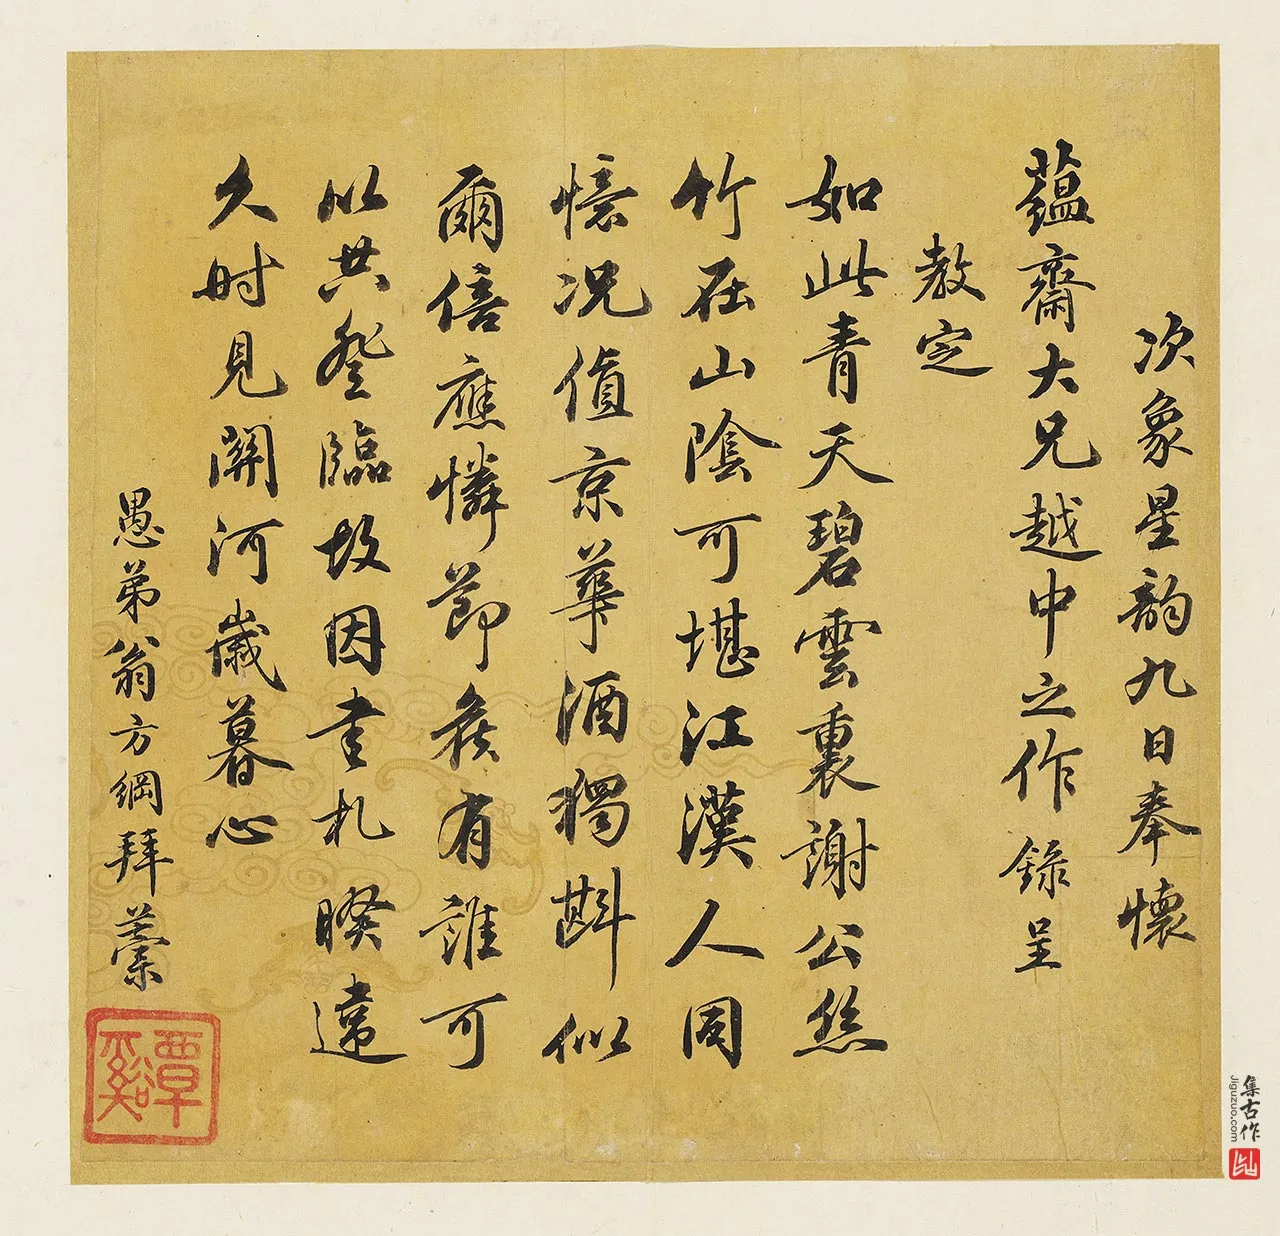 次象星韵九日奉懷
蘊齋大兄越中之作錄呈
教定
如此青天碧雲裏謝公絲
竹在山陰可堪江漢人同
憶況值京華酒獨斟似
爾倍應憐節候有誰可
以共登臨故因書札睽違
久时見關河歲暮心
愚弟翁方綱拜藁
覃谿
集古作
Jiguzuo.com